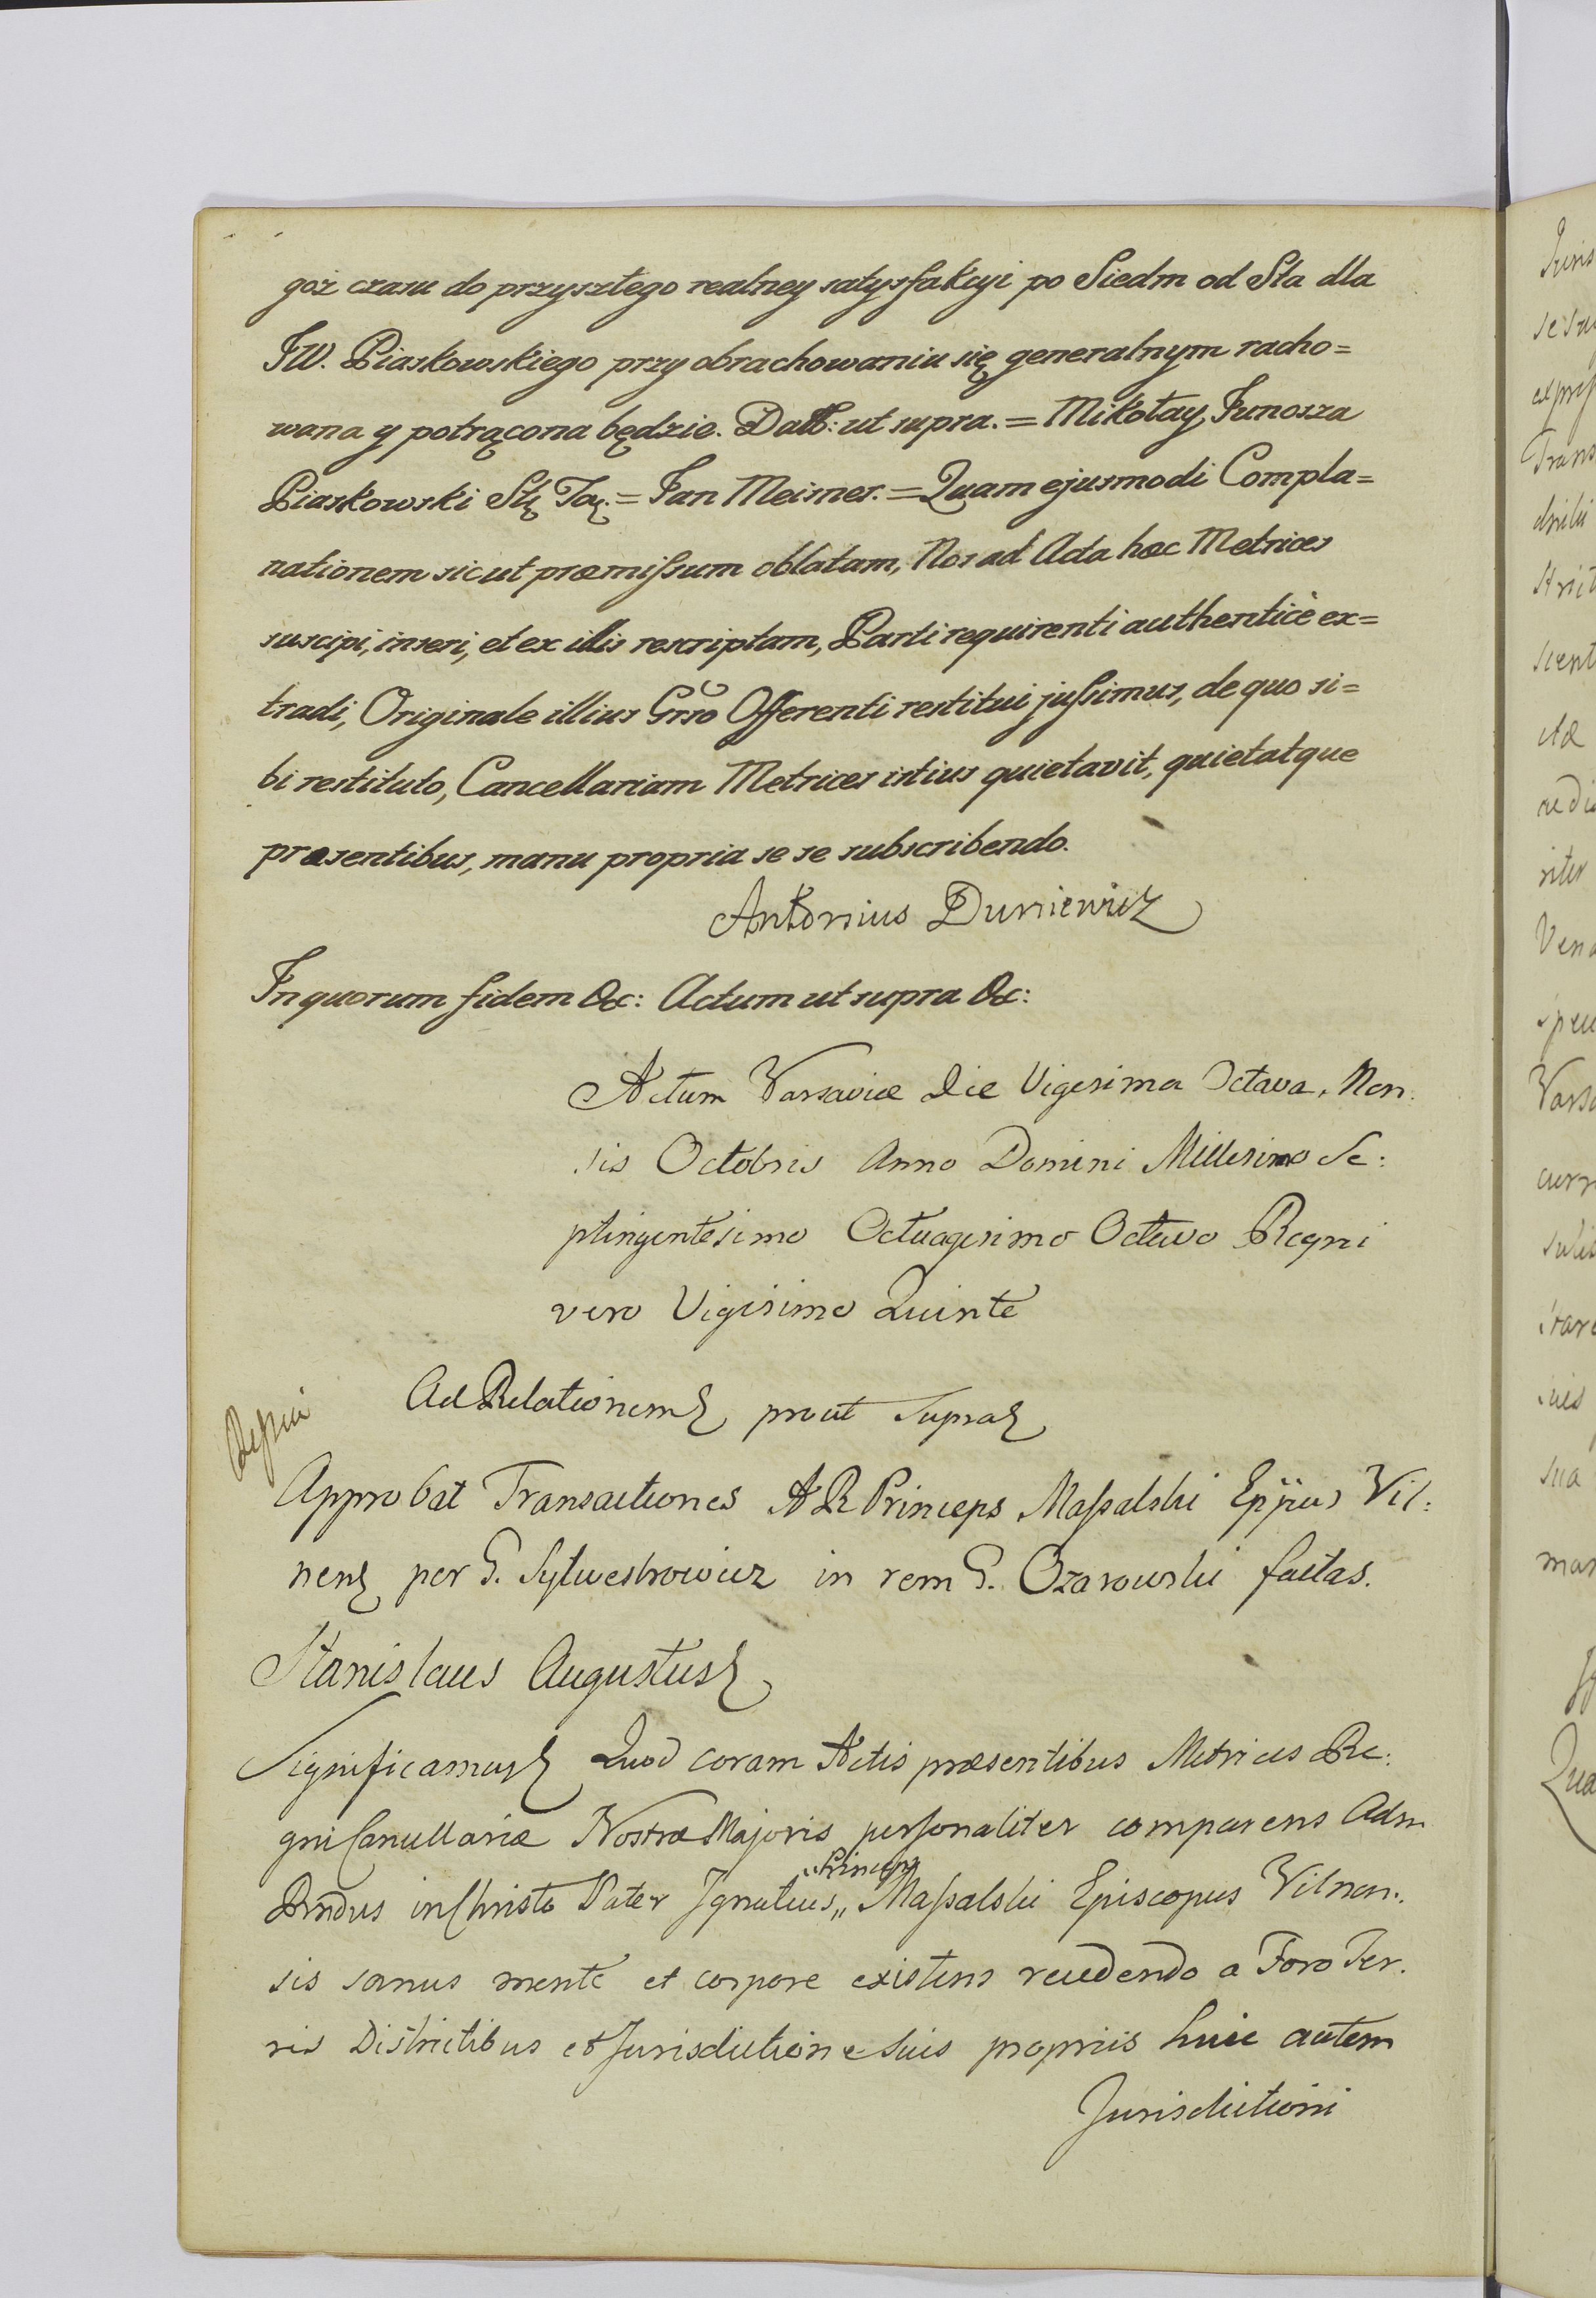 goż czasu do przyszłego realney satysfakcyi po Siedm od Sta dla
JW. Piaskowskiego przy obrachowaniu się generalnym racho=
wana y potrącona będzie. Datt: ut supra. = Mikołay Junosza
Piaskowski = Jan Meisner. = Quam ejusmodi Compla=
nationem sicut præmissum oblatam, Nos ad Acta hæc Metrices
suscipi, inseri, et ex illis rescriptam, Parti requirenti authenticè ex=
tradi, Originale illius Grso Offerenti restitui jussimus, de quo si=
bi restituto, Cancellariam Metrices istius quietavit, quietatque
præsentibus, manu propria se se subscribendo.
Antonius Duniewicz
In quorum fidem &c: Actum ut supra &c:
Actum Varsaviæ Die Vigesima Octava, Men.
sis Octobris Anno Domini Millesimo Se:
ptingentesimo Octuagesimo Octavo Regni
vero Vigesimo Quinto
Ad Relationem prout Supra
Approbat Transactiones A R Princeps Massalski Eppus Vil:
nens per G. Sylwestrowicz in rem G. Ozarowski factas.
Stanislaus Augustus
Significamus Quod coram Actis præsentibus Metrices Re:
gni Cancellariæ Nostræ Majoris personaliter comparens Adm
Rndus in Christo Pater Ignatius „ Princeps Massalski Episcopus Vilnen:
sis sanus mente et corpore existens recedendo a Foro Ter.
ris Districtibus et Jurisdictione suis propriis huic autem
Jurisdictioni